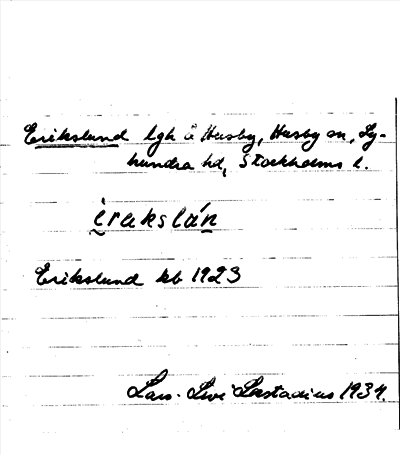 Erikslund lgh å Husby, Husby sn, Ly-
hundra hd, Stockholms l.
èrakslán
Erikslund kb 1923
Lars-Levi Læstadius 1934.